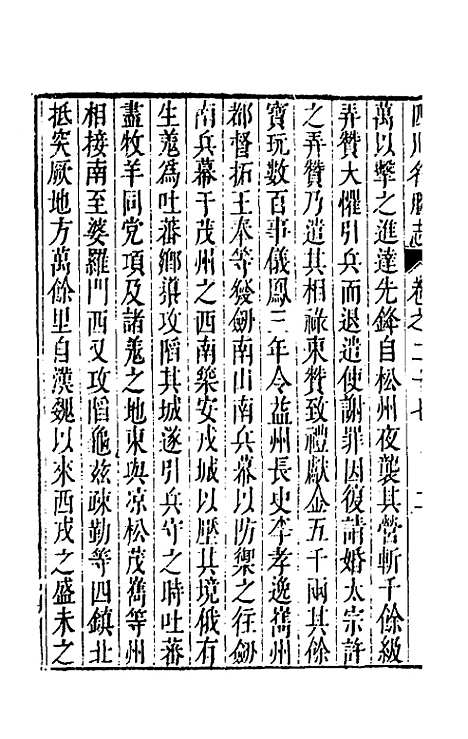 四川名勝志 卷之二十七 二
萬以擊之進達先鋒自松州夜襲其營斬千餘級
弄贊大懼引兵而退遣使謝罪因復請婚太宗許
之弄贊乃遣其相祿東贊致禮獻金五千兩其餘
寶玩數百事儀鳳三年令益州長史李孝逸巂州
都督拓王奉等發劒南山南兵募以防禦之往劒
南兵募于茂州之西南築安戎城以壓其境俄有
生羌爲吐蕃鄉導攻陷其城遂引兵守之時吐蕃
盡牧羊同党項及諸羌之地東與凉松茂巂等州
相接南至婆羅門西又攻陷龜玆疎勒等四鎮北
抵突厥地方萬餘里自漢魏以來西戎之盛未之